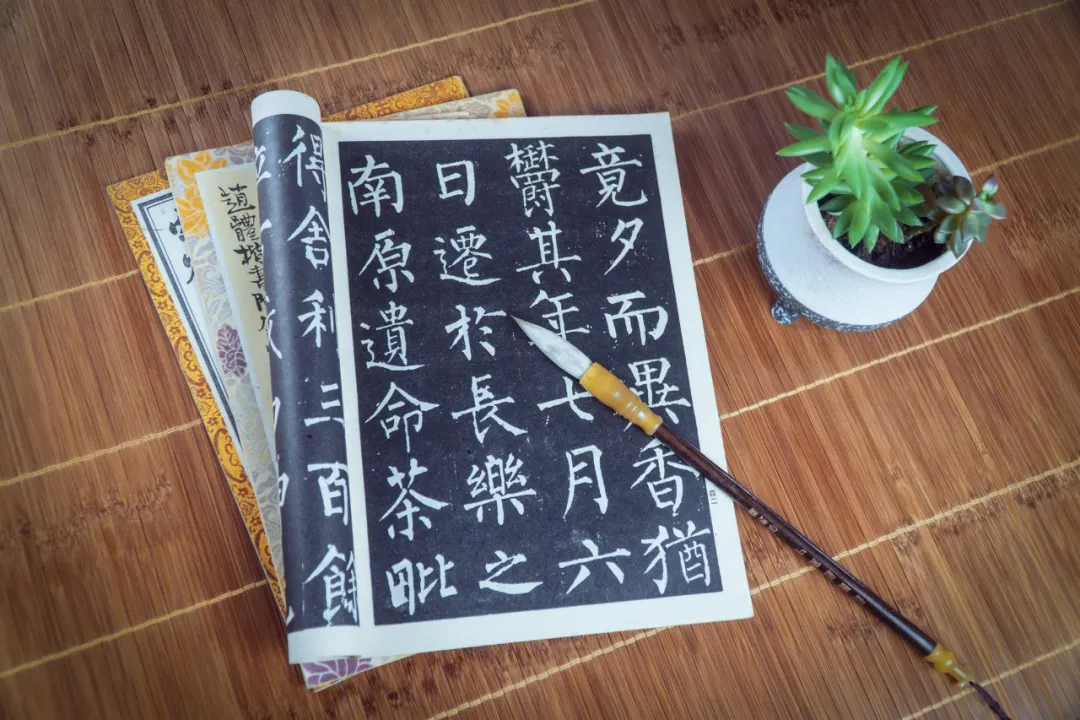 竟夕而異香猶
欝其年七月六
日遷於長樂之
南原遺命茶毗
得舍利三百餘
四二
趙體楷書